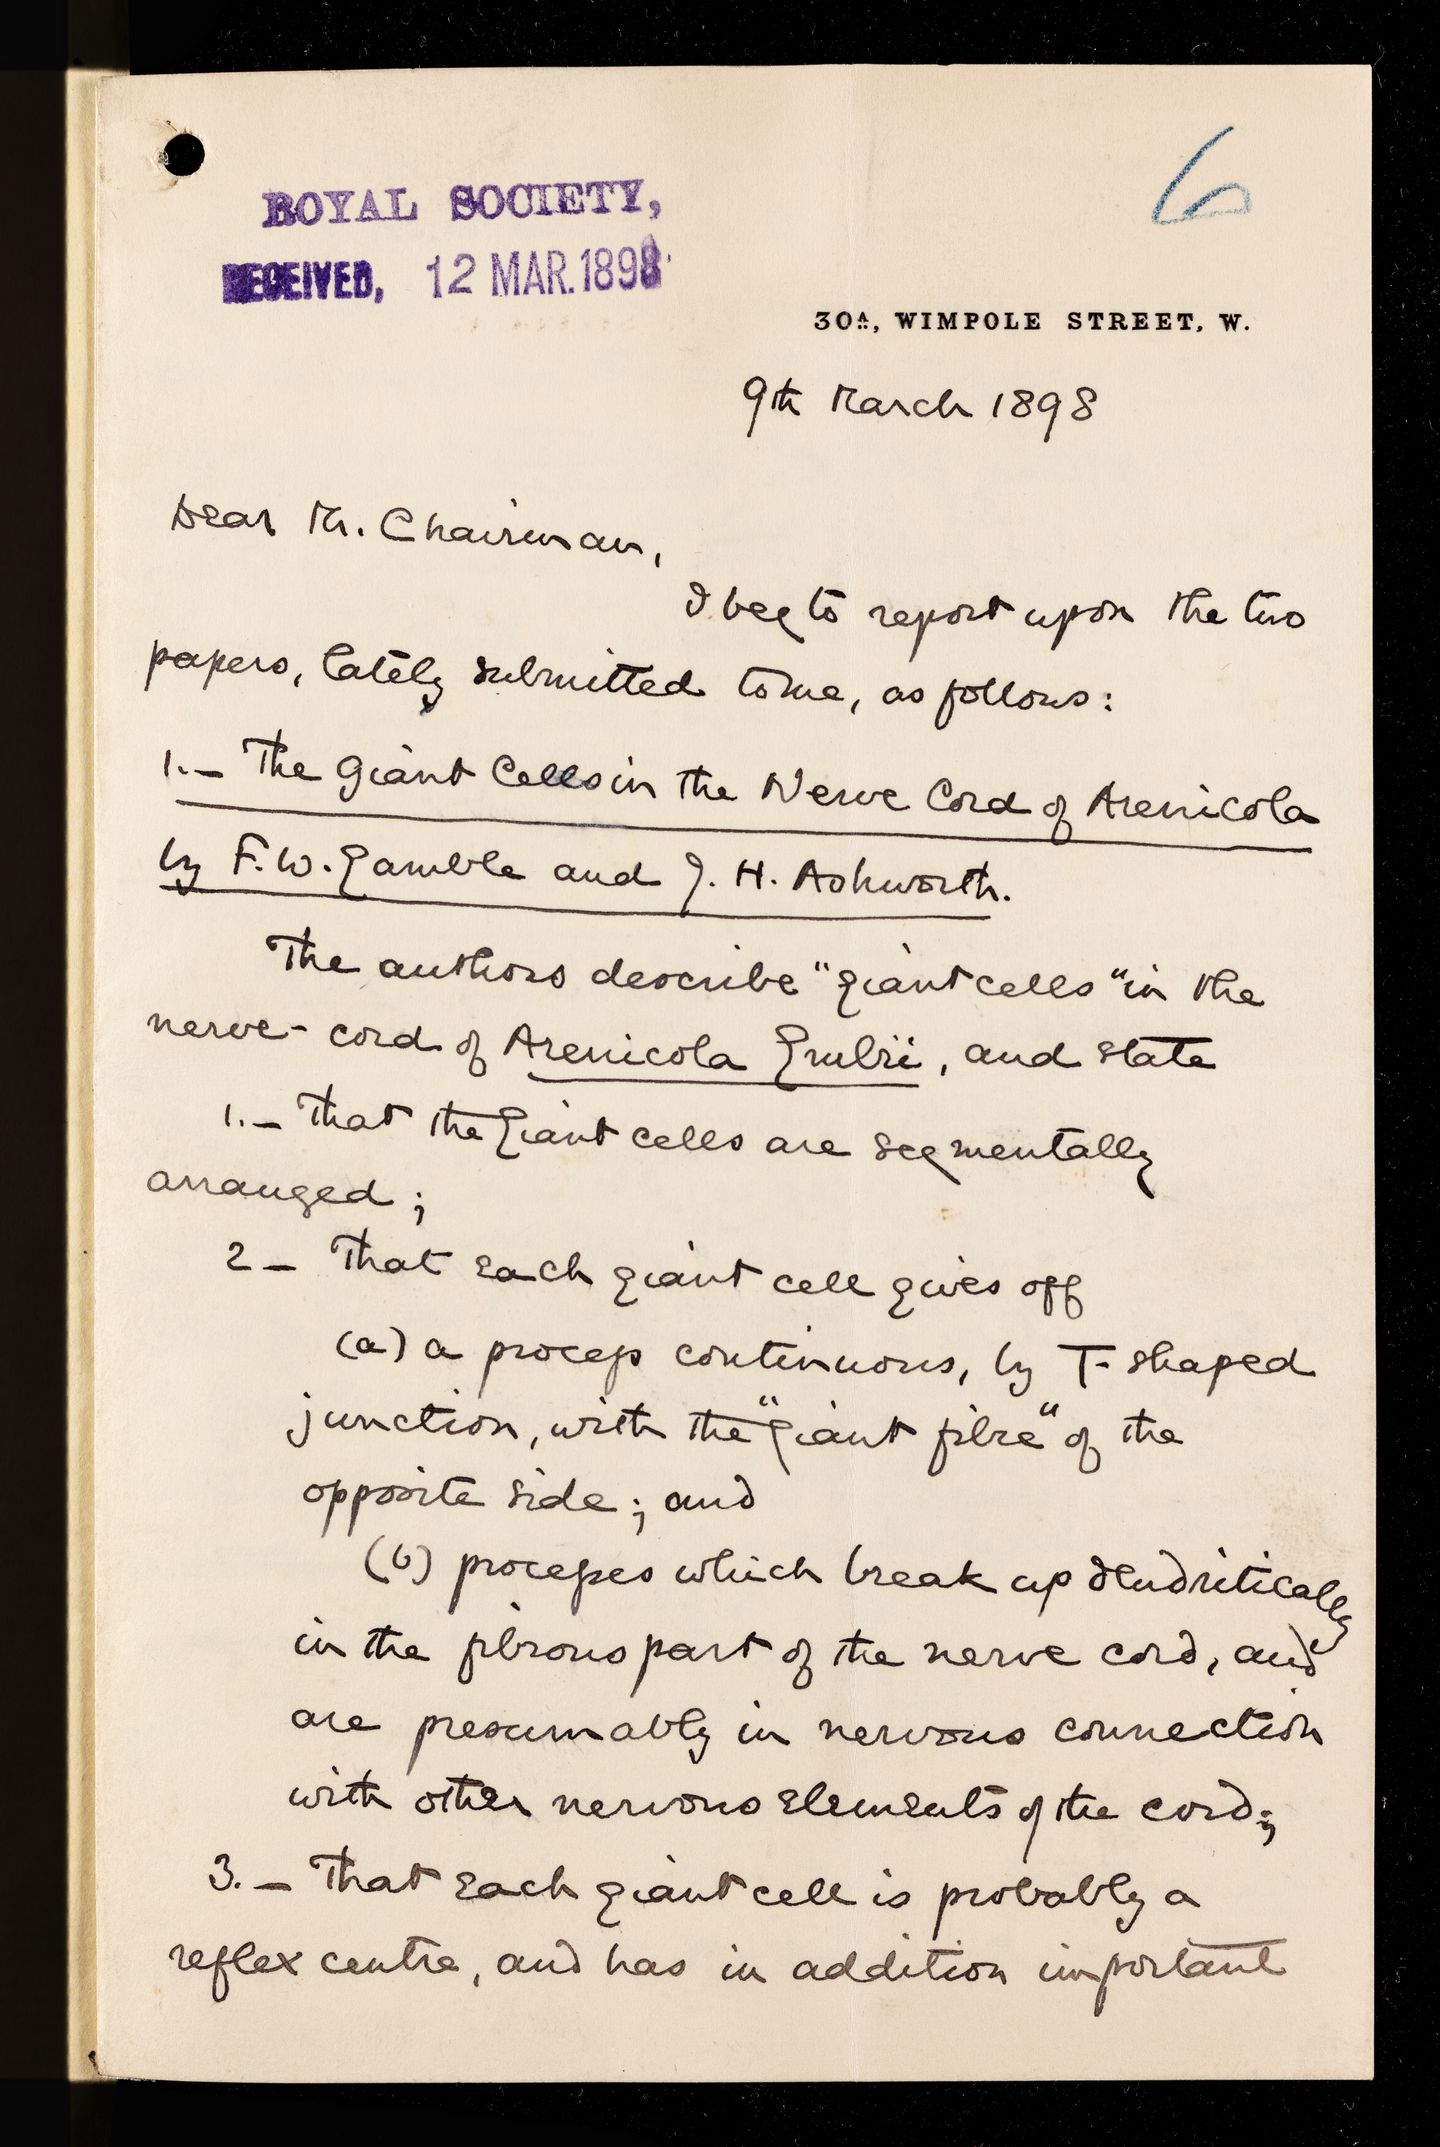 ROYAL SOCIETY,
RECEIVED, 12 MAR. 1898
6
30A, WIMPOLE STREET, W.
9th March 1898
Dear Mr. Chairman,
I beg to report upon the two
papers, lately submitted to me, as follows:
1.— The Giant Cells in the Nerve Cord of Arenicola
by F. W. Gamble and J. H. Ashworth.
The authors describe "giant cells" in the
nerve-cord of Arenicola Grubii, and state
1.— That the giant cells are segmentally
arranged;
2 — That each giant cell gives off
(a) a process continuous, by T-shaped
junction, with the "giant fibre" of the
opposite side; and
(b) processes which break up dendritically
in the fibrous part of the nerve cord, and
are presumably in nervous connection
with other nervous elements of the cord;
3. — That each giant cell is probably a
reflex centre, and has in addition important